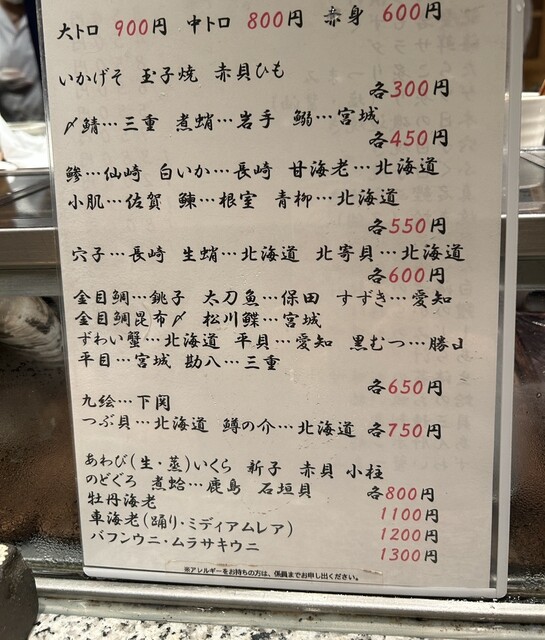 大トロ 900円 中トロ 800円 赤身 600円
いかげそ 玉子焼 赤貝ひも
各300円
〆鯖…三重 煮蛸…岩手 鰯…宮城
各450円
鯵…仙崎 白いか…長崎 甘海老…北海道
小肌…佐賀 鰊…根室 青柳…北海道
各550円
穴子…長崎 生蛸…北海道 北寄貝…北海道
各600円
金目鯛…銚子 太刀魚…保田 すずき…愛知
金目鯛昆布〆 松川鰈…宮城
ずわい蟹…北海道 平貝…愛知 黒むつ…勝山
平目…宮城 勘八…三重
各650円
九絵…下関
つぶ貝…北海道 鱒の介…北海道 各750円
あわび(生・蒸) いくら 新子 赤貝 小柱
のどぐろ 煮蛤…鹿島 石垣貝 各800円
牡丹海老 1100円
車海老(踊り・ミディアムレア) 1200円
バフンウニ・ムラサキウニ 1300円
※アレルギーをお持ちの方は、係員までお申し出ください。